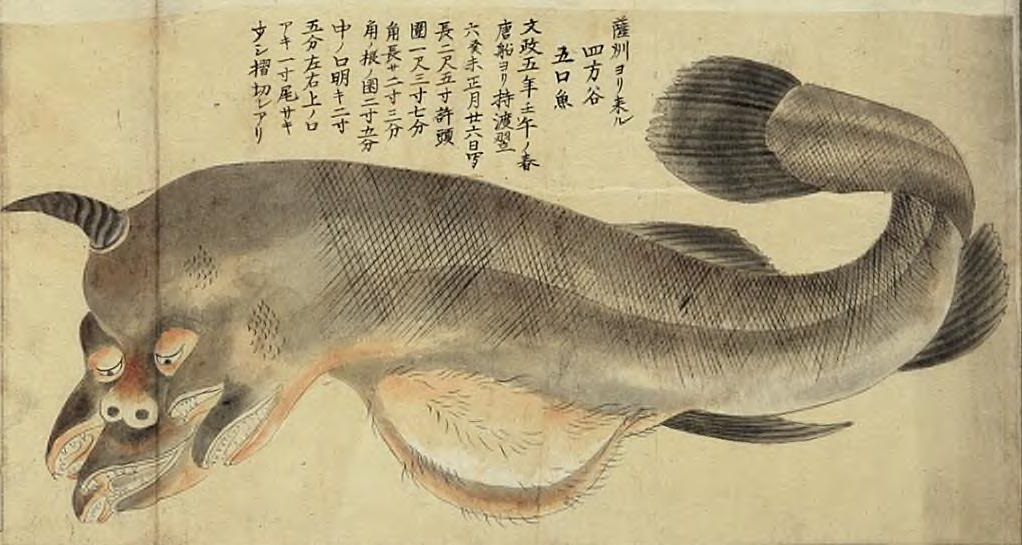 薩州ヨリ来ル
四方谷
五口魚
文政五年壬午ノ春
唐船ヨリ持渡翌
六癸未正月廿六日写
長二尺五寸許頭
囲一尺三寸七分
角長サ二寸三分
角ノ根ノ囲二寸五分
中ノ口明キ二寸
五分左右上ノ口
アキ一寸尾サキ
少シ摺切レアリ